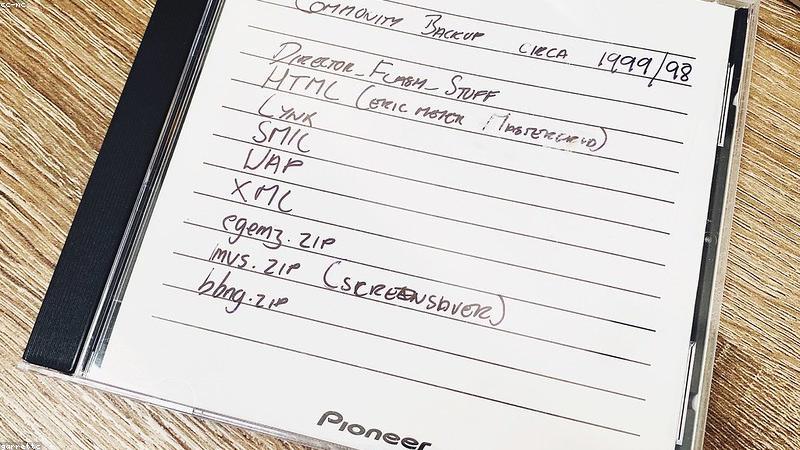 cc-nc
COMMUNITY BACKUP CIRCA 1999/98
DIRECTOR_FLASH_STUFF
HTML (ERIC MEYER MASTERGRID)
LYNX
SMIL
WAP
XML
egemz.ZIP
mvs.ZIP (SCREENSAVER)
bbng.ZIP
Pioneer
garrettc